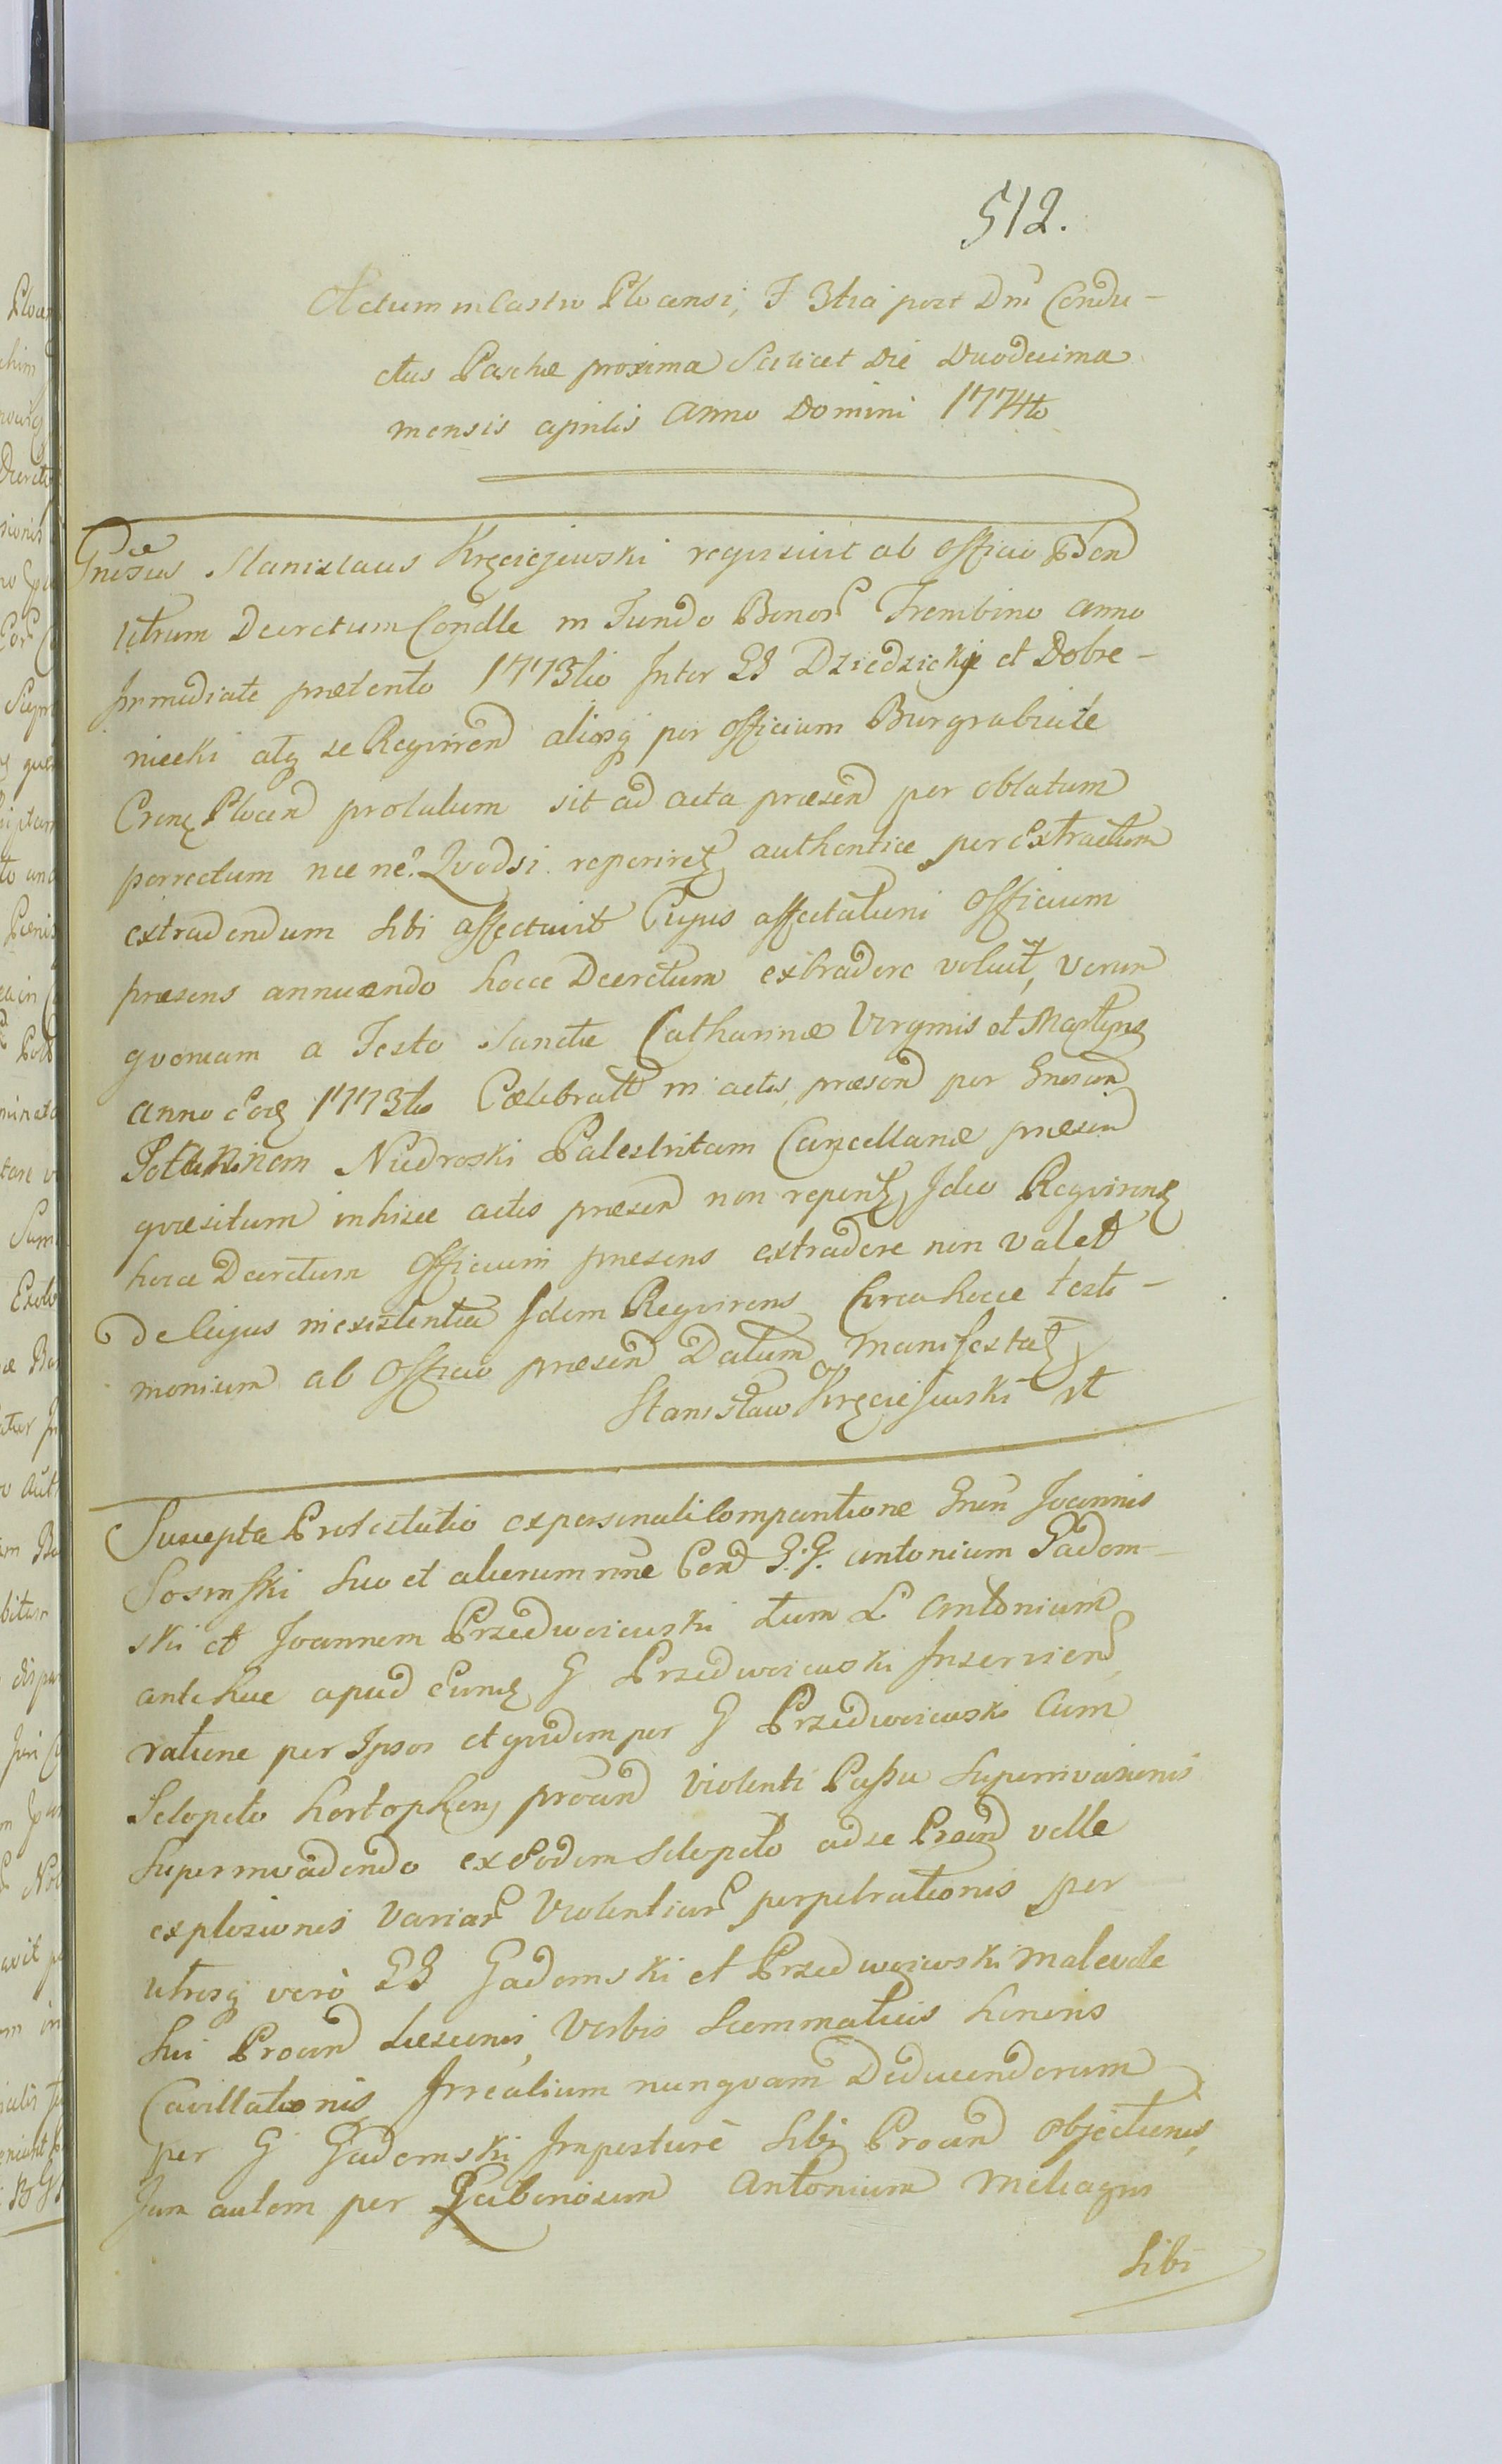 512.
Actum in Castro Plocensi, F 3tia post Dnī Condu-
ctus Paschæ proxima Scilicet Die Duodecima
mensis aprilis Anno Domini 1774to
Gnrsus Stanislaus Kręciejewski requisivit ab Officio
utrum Decretum Condlle in Fundo Bonor Trembino anno
Immediate præterito 1773tio Inter GG Dziedzicki et Dobie-
niecki atq se Requiren aliosq per Officium Burgrabiale
Crens Plocen prolatum sit ad acta præsen per oblatam
porrectum nec ne? Quodsi reperiretz authentice per extractum
extradendum sibi affectavit Cujus affectationi Officium
præsens annuendo hocce Decretum extradere voluit, verum
quoniam a Festo Sanctæ Catharinæ Virginis et Martyris
anno eod 1773tio Celebratt in actis præsen per Gnrsum
Nudroski Palestritam Cancellariæ præsen
quæsitum inhisce actis præsen non reperitz, Ideo Requirenti
hocce Decretum Officium præsens extradere non valet
De Cujus inexistentia Idem Requirens Circa hocce testi-
monium ab Officio præsen Datum manifestatz
Stanisław Kręciejewski
Suscepta Protestatio ex personali Comparitione Gnrsi Joannis
Sosinski suo et aliorum nne Con G.G. Antonium Gadom-
ski et Joannem Przedwoiewski tum L Antonium
antehac apud eund G Przedwoiewski Inservien
ratione per Ipsos et quidem per G Przedwoiewski Cum
Sclopeto procan violenti Passu Superinvasionis
Superinvadendo ex eodem Sclopeto ad se Procan velle
explosionis Variar Violentiar perpetrationis per
utrosq vero GG Gadomski et Przedwoiewski malevole
sui Procan Læsionis, Verbis Scommaticis honoris
Cavillationis Irrealium nunquam Deducendorum
per G Gadomski Imposture sibi Procan Objectionis,
Jam autem per Laboriosum Antonium
Sibi